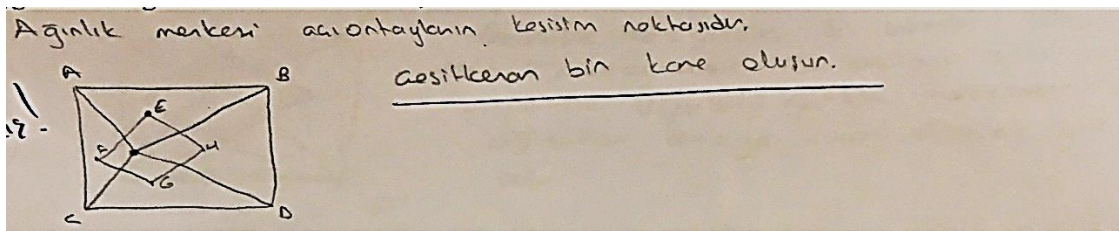 Ağırlık merkezi açıortayların kesişim noktasıdır.
A B
çeşitkenar bir kare oluşur.
E
F H
G
C D